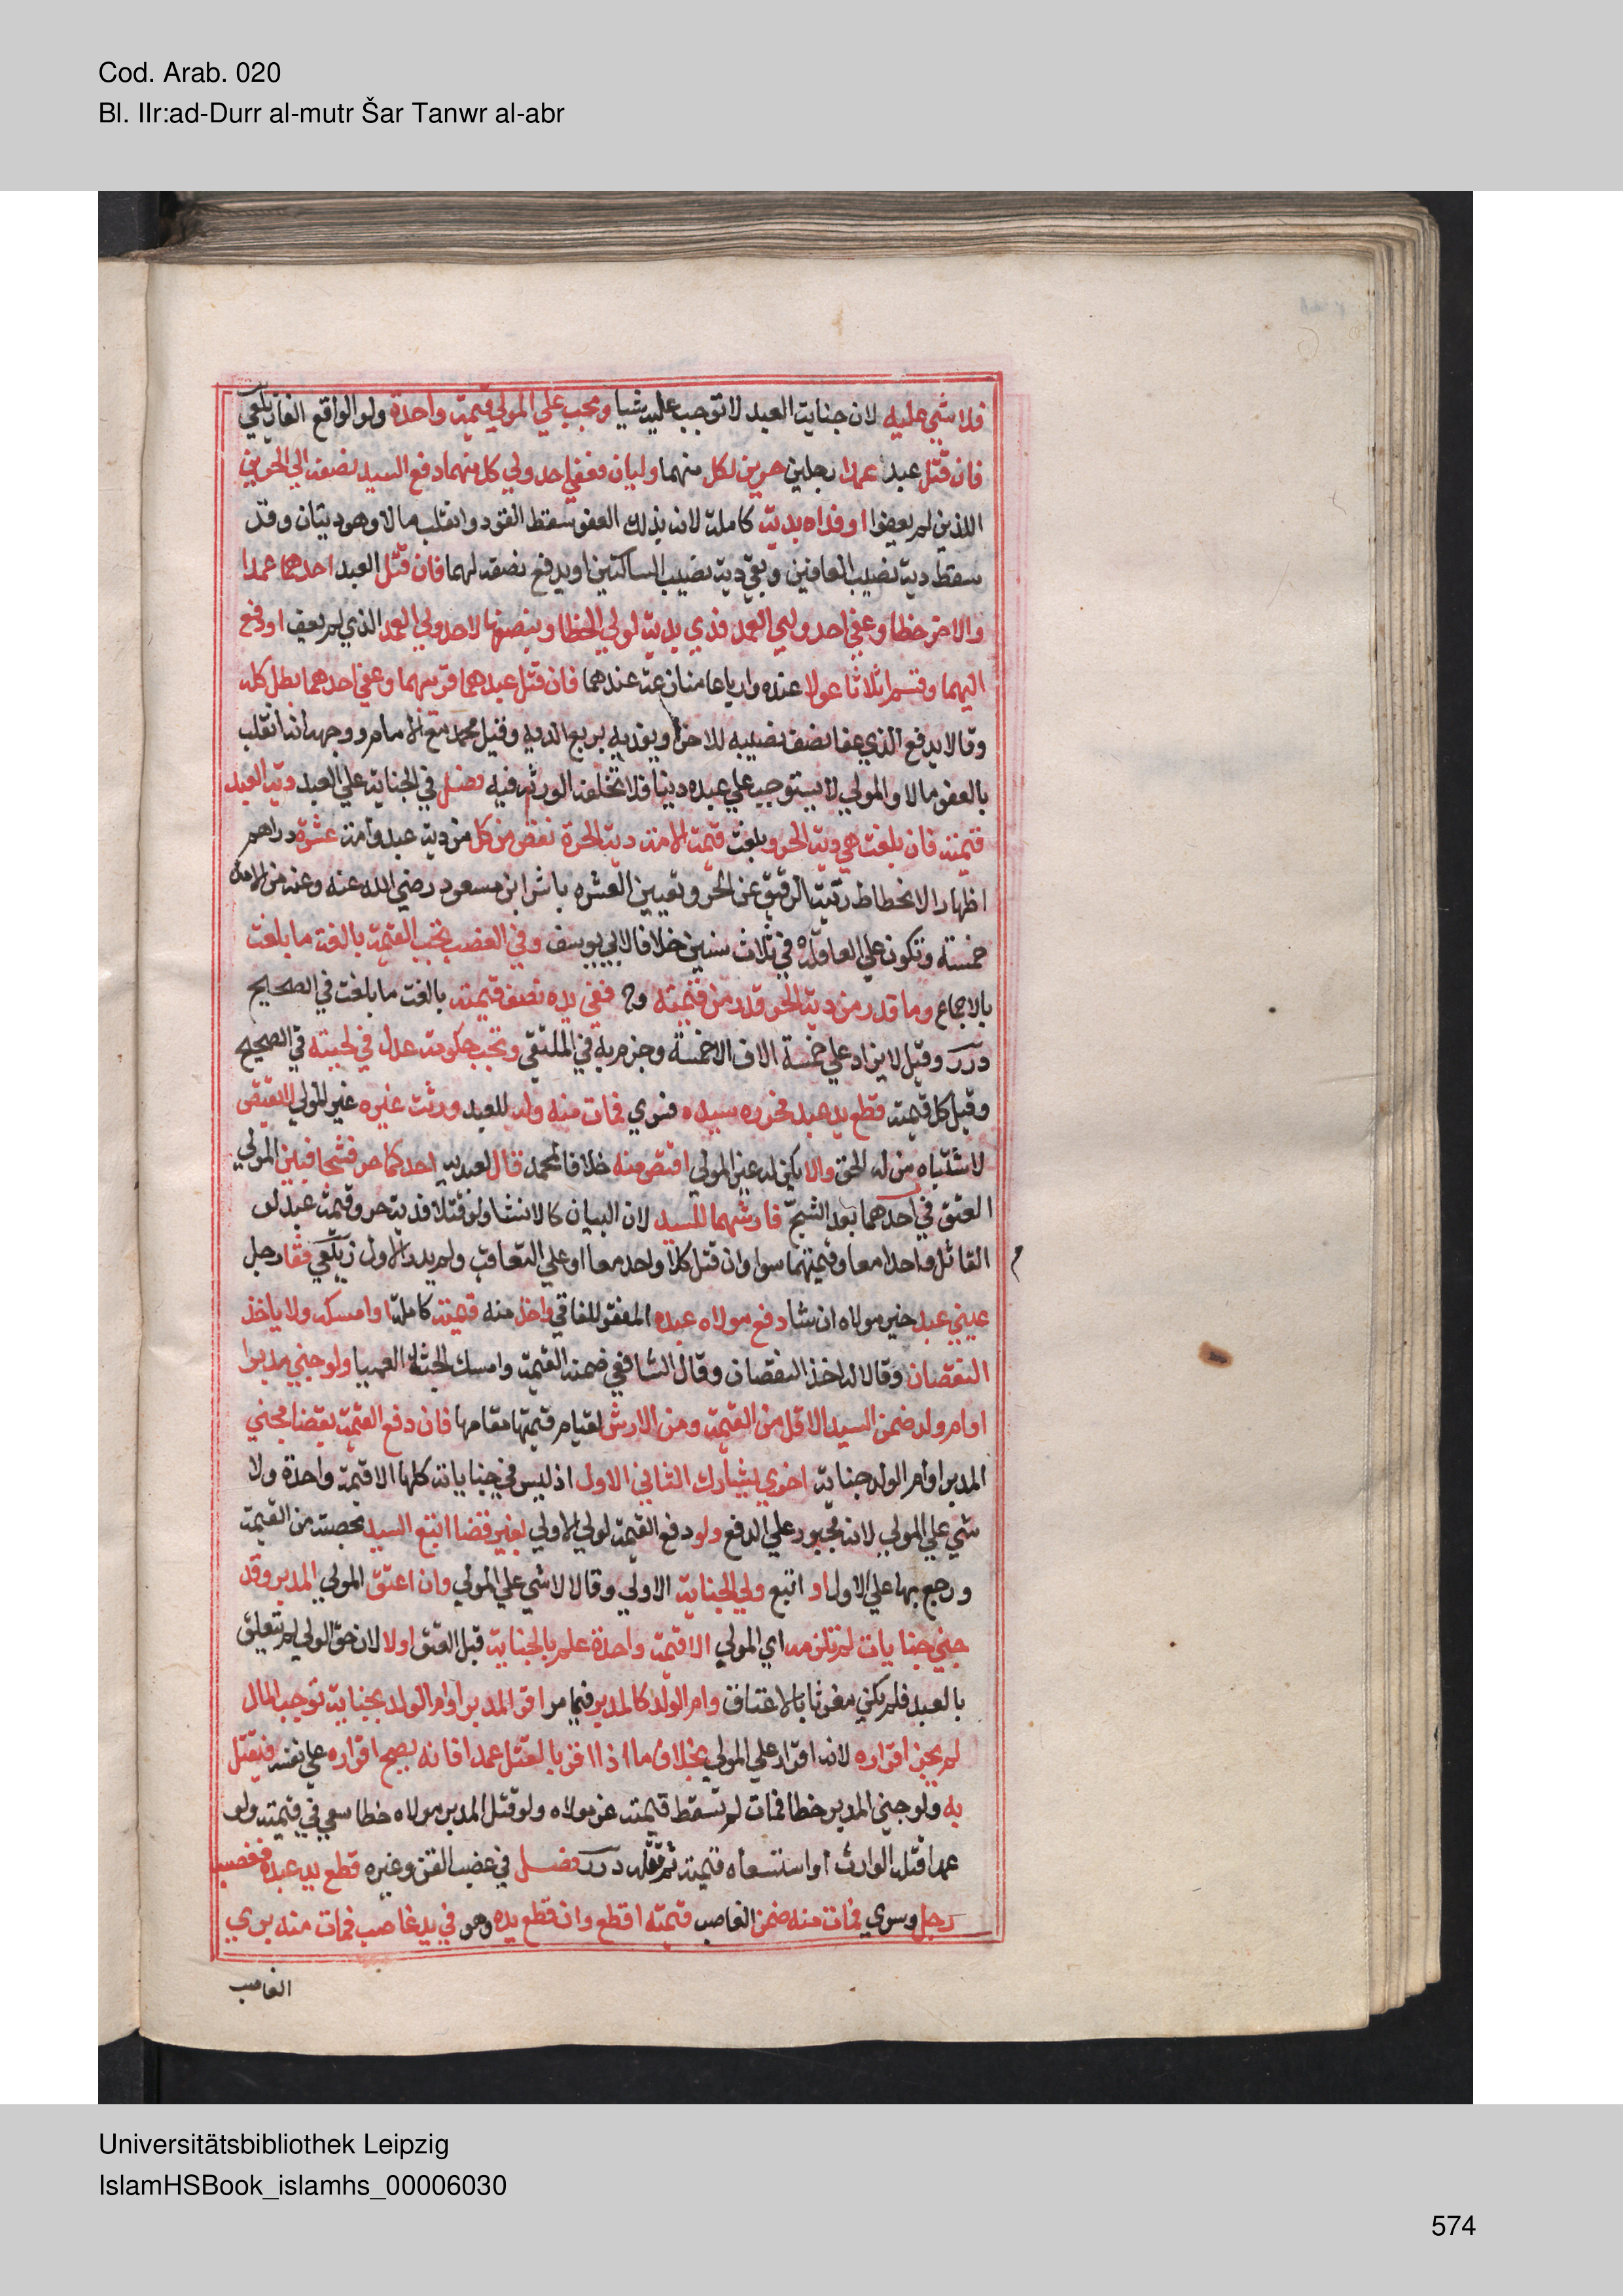 Cod. Arab. 020
Bl. IIr:ad-Durr al-mutr Šar Tanwr al-abr
فلا شي عليه لان جناية العبد لا توجب عليه شيا ويجب علي المولي قيمة واحدة ولو الواقع الفا زيلعي
فان قتل عبد عمدا رجلين حرين لكل منهما وليان فعفي احد ولي كل منهما دفع السيد نصفه الي الحرين
اللذين لم يعفوا او فداه بدية كاملة لانه بذلك العفو سقط القود وانقلب مالا وهو ديتان وقد
سقط دية نصيب العافين وبقي دية نصيب الساكتين او يدفع نصفه لهما فان قتل العبد احدهما عمدا
والاخر خطا وعفي احد وليي العمد فدي بدية لولي الخطا وبنصفها لاحد ولي العمد الذي لم يعف او دفع
اليهما وقسم اثلاثا عولا عنده وارباعا منازعة عندهما فان قتل عبدهما قريبهما وعفي احدهما بطل كله
وقالا يدفع الذي عفا نصف نصيبه للاخر او يفديه بربع الدية وقيل محمد مع الامام ووجهه انه انقلب
بالعفو مالا والمولي لا يستوجب علي عبده دينا فلا تخلفه الورثة فيه فصل في الجناية علي العبد دية العبد
قيمته فان بلغت هي دية الحر وبلغت قيمة الامة دية الحرة نقص من كل من دية عبد وامة عشرة دراهم
اظهارا لانحطاط رتبة الرقيق عن الحر وتعيين العشره باثر ابن مسعود رضي الله عنه وعنه من الامة
خمسة وتكون علي العاقله في ثلاث سنين خلافا لابي يوسف وفي الغصب تجب القيمة بالغة ما بلغت
بالاجماع وما قدر من دية الحر قدر من قيمته وح ففي يده نصف قيمته بالغة ما بلغت في الصحيح
درر وقيل لا يزاد علي خمسة الاف الا خمسة وجزم به في الملتقي وتجب حكومة عدل في لحيته في الصحيح
وقيل كل قيمته قطع يد عبد فحرره سيده فسري فمات منه وله للعبد ورثة غيره غير المولي لا يقتص
لاشتباه من له الحق والا يكن له غير المولي اقتص منه خلافا لمحمد قال لعبديه احدكما حر فشجا فبين المولي
العتق في احدهما بعد الشج فارشهما للسيد لان البيان كالانشا ولو قتلا فدية حر وقيمة عبد لو
القاتل واحدا معا وقيمتهما سوا وان قتل كلا واحد معا او علي التعاقب ولم يدر الاول زيلعي فقا رجل
عيني عبد خير مولاه ان شا دفع مولاه عبده المفقو للفاقي واخذ منه قيمته كاملة او امسكه ولا ياخذ
النقصان وقالا له اخذ النقصان وقال الشافعي ضمنه القيمة وامسك الجثة العميا ولو جني مدبر
او ام ولد ضمن السيد الاقل من القيمة ومن الارش لقيام قيمتها مقامها فان دفع القيمة بقضا فجني
المدبر او ام الولد جناية اخري يشارك الثاني الاول اذ ليس في جناياته كلها الا قيمة واحدة ولا
شي علي المولي لانه مجبور علي الدفع ولو دفع القيمة لولي الاولي بغير قضا اتبع السيد بحصته من القيمة
ورجع بها علي الاول او اتبع ولي الجناية الاولي وقالا لا شي علي المولي وان اعتق المولي المدبر وقد
جني جنايات لم تلزمه اي المولي الا قيمة واحدة علم بالجناية قبل العتق اولا لان حق الولي لم يتعلق
بالعبد فلم يكن مفوتا بالاعتاق وام الولد كالمدبر فيما مر اقر المدبر او ام الولد بجناية توجب المال
لم يجز اقراره لانه اقرار علي المولي بخلاف ما اذا اقر بالقتل عمدا فانه يصح اقراره علي نفسه فيقتل
به ولو جني المدبر خطا فمات لم تسقط قيمته عن مولاه ولو قتل المدبر مولاه خطا سعي في قيمته ولو
عمدا قتله الوارث او استسعاه قيمته ثم قتله درر فصل في غصب القن وغيره قطع يد عبده فغصبه
رجل وسري فمات منه ضمن الغاصب قيمته اقطع وان قطع يده وهو في يد غاصب فمات منه بري
الغاصب
Universitätsbibliothek Leipzig
IslamHSBook_islamhs_00006030
574